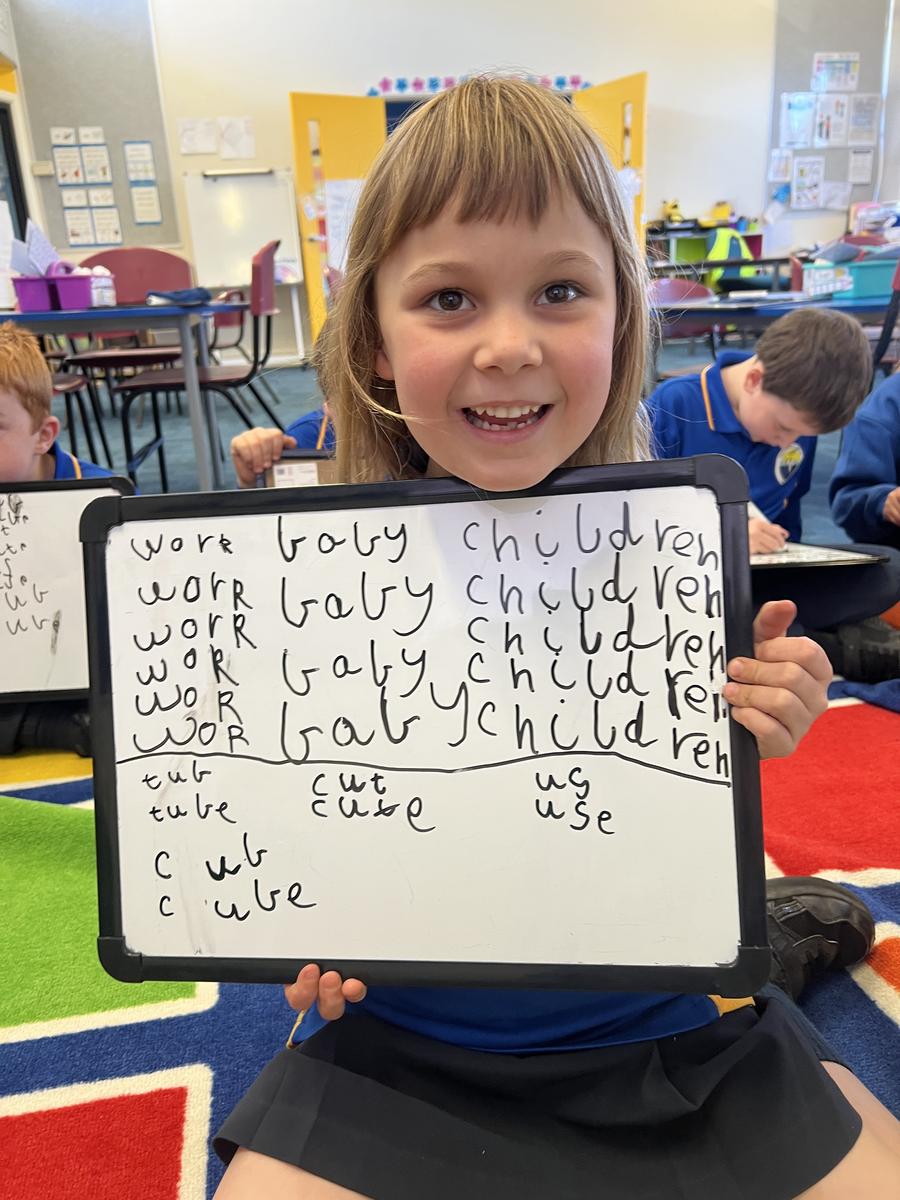 work baby children
worR baby children
worR children
woR baby children
woR
woR baby children
tub cut us
tube cute use
cub
cube